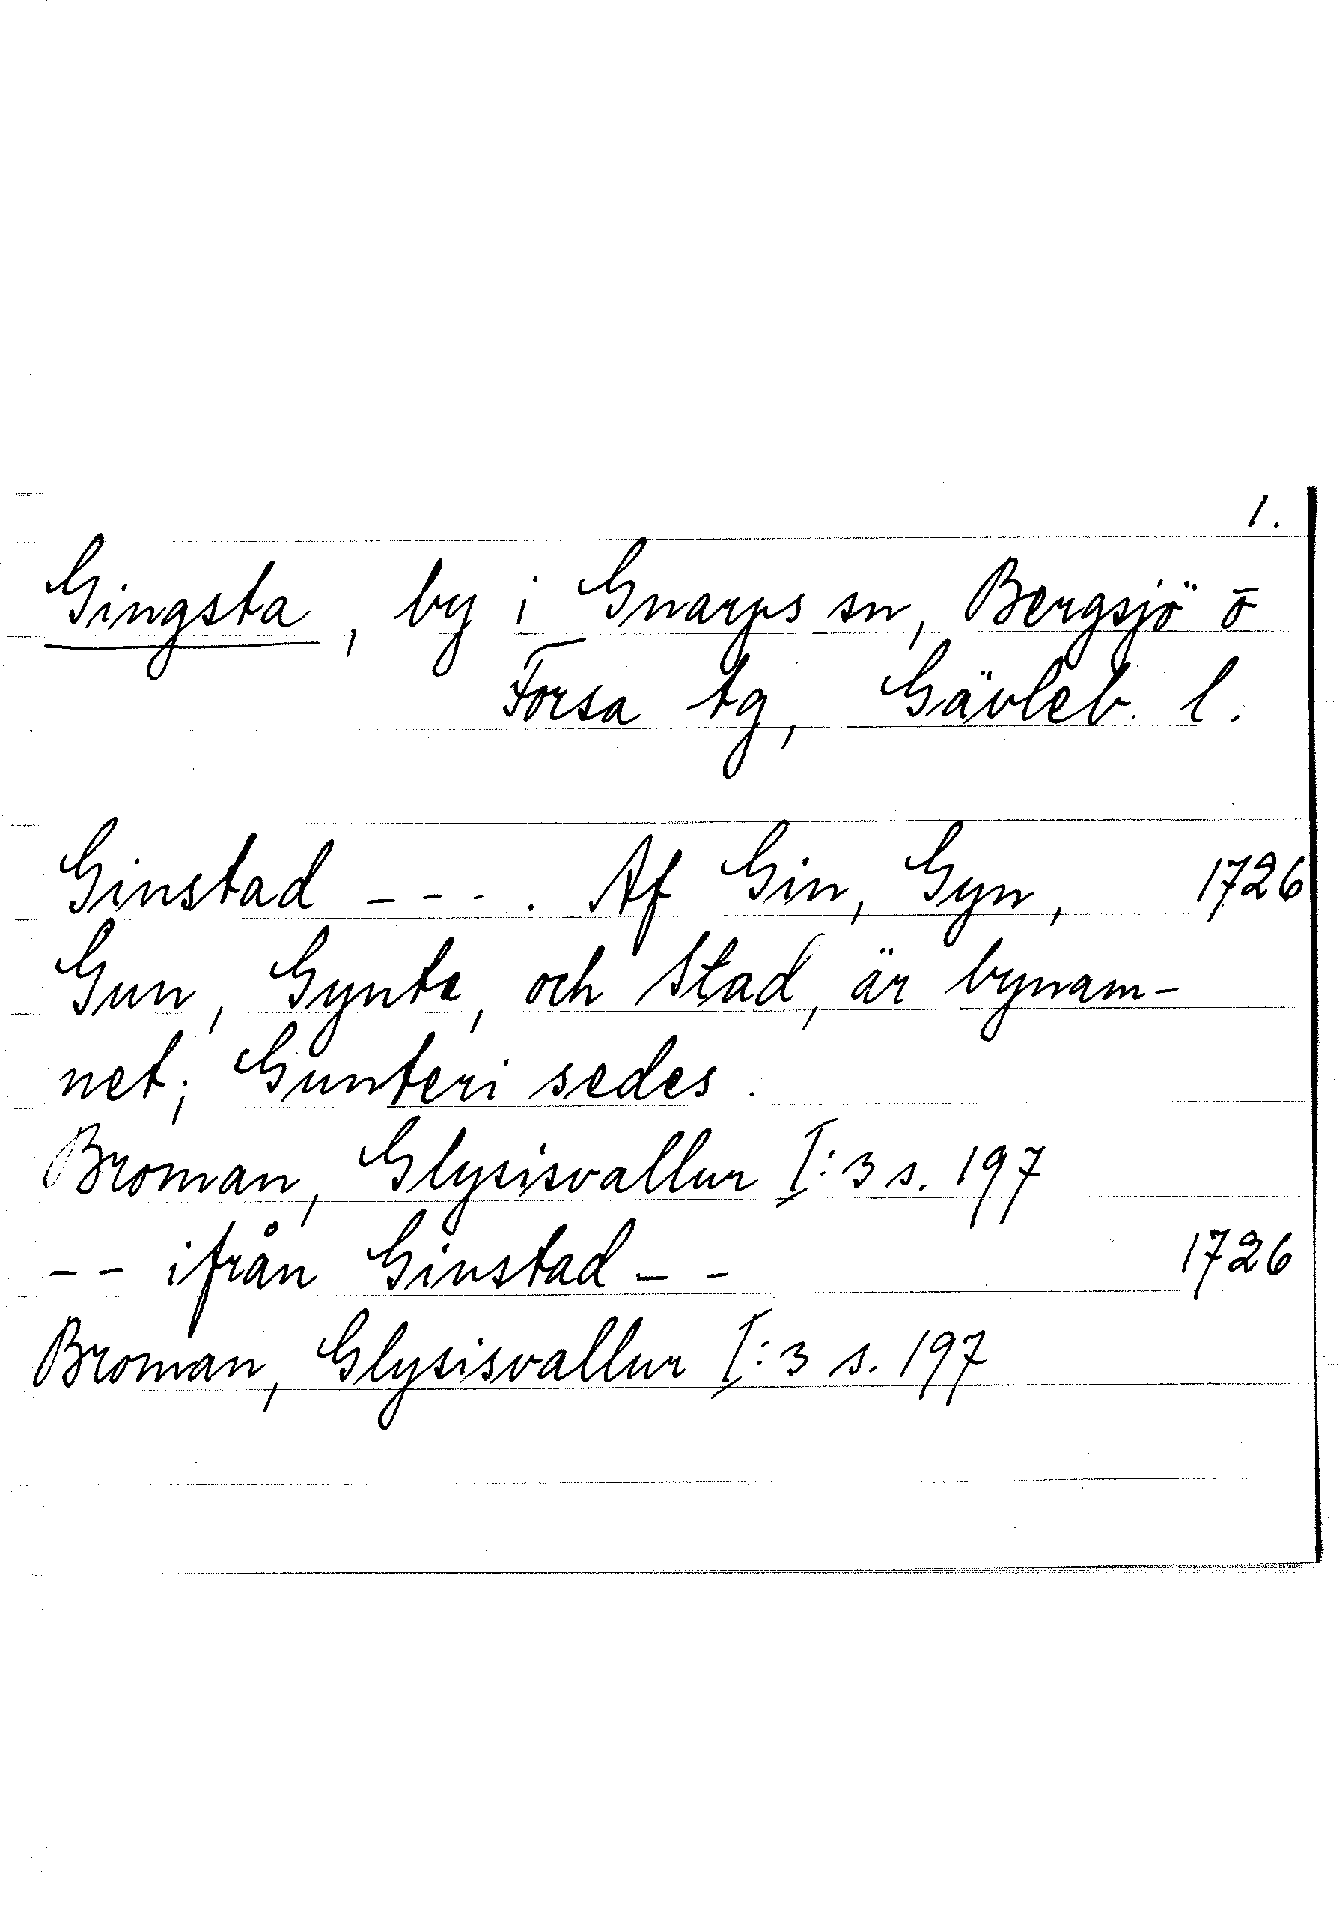 1.
Gingsta, by i Gnarps sn, Bergsjö o
Forsa tg, Gävleb. l.
Ginstad - - - . Af Gin, Gyn, 1726
Gun, Gynte, och Stad, är bynam-
net; Gunteri sedes.
Broman, Glysisvallur I:3 s. 197
- - ifrån Ginstad - - 1726
Broman, Glysisvallur I:3 s. 197